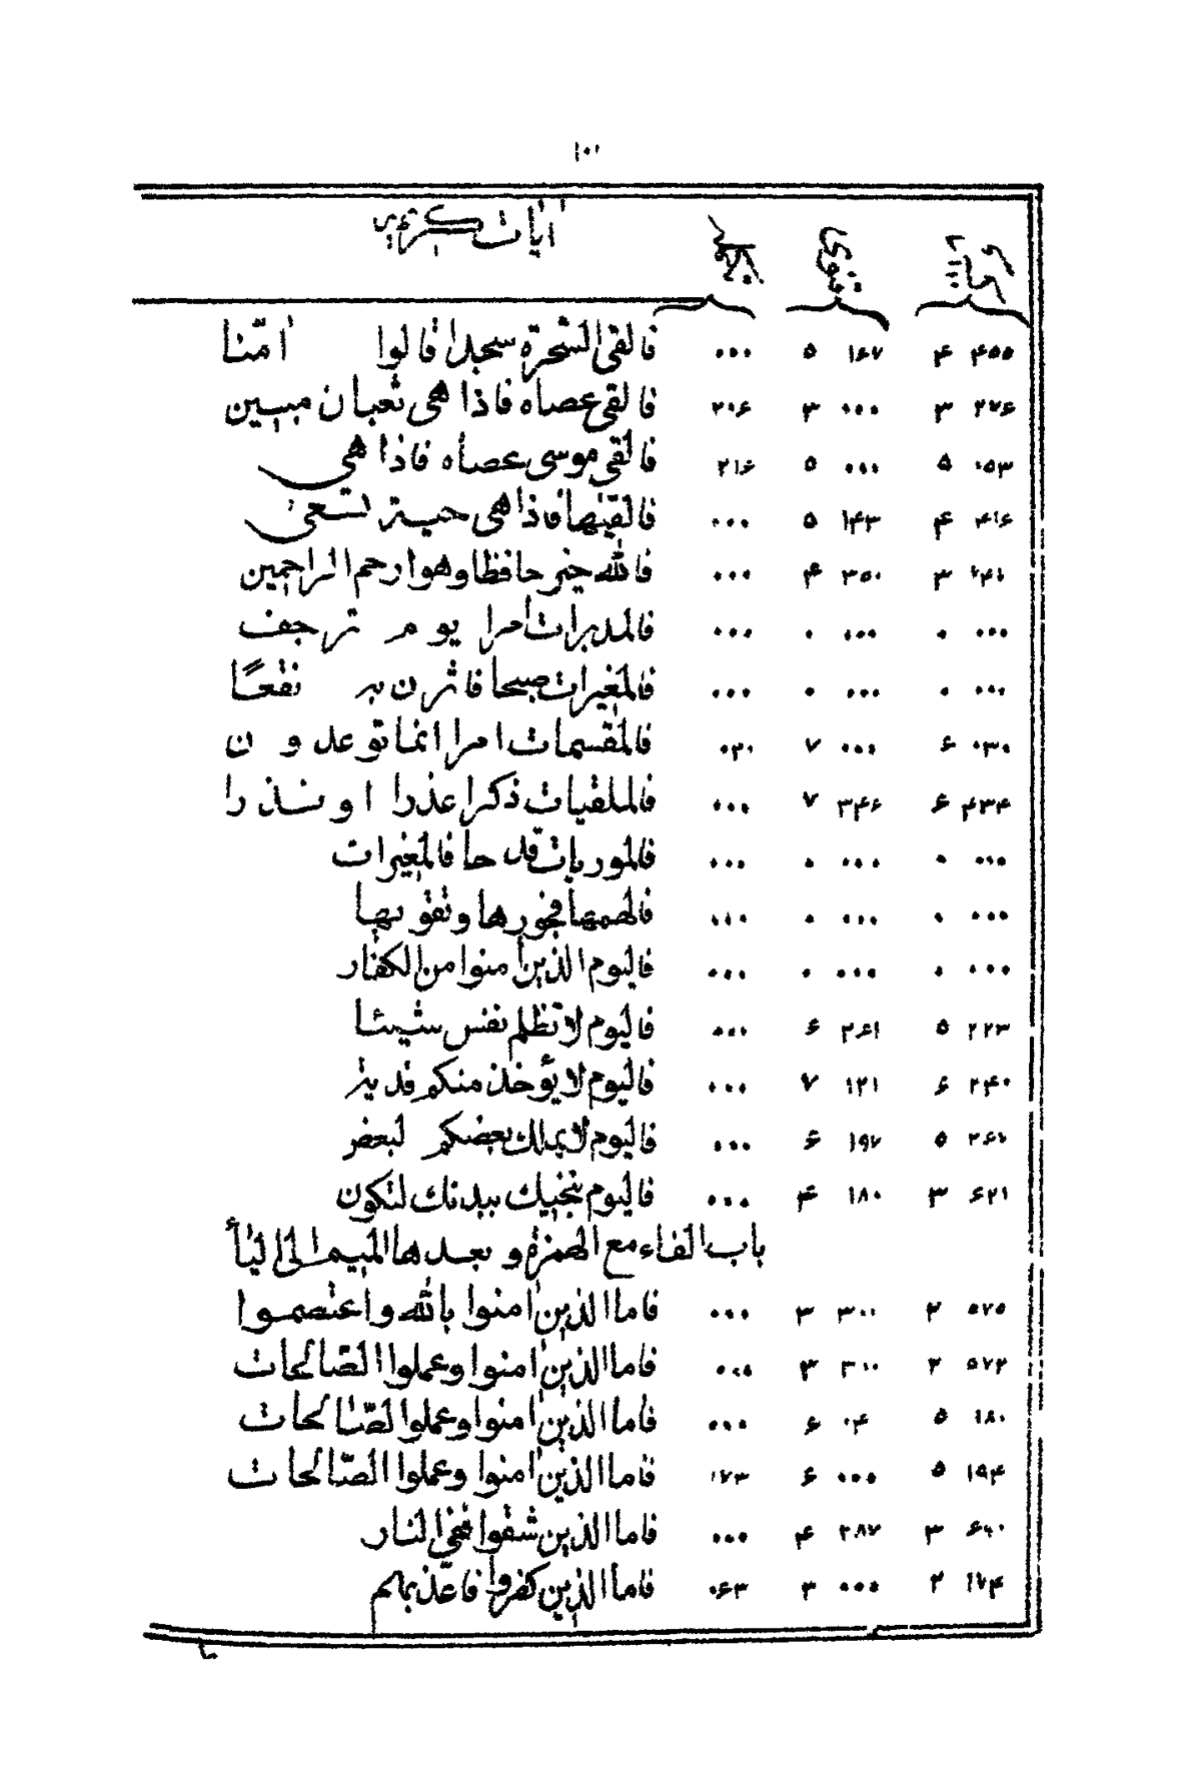 ١٠١
اٰیات کریمه
قنوی
۴۵۵ ۴ ۱۶۷ ۵ ۰۰۰ فالقی السّحرة سجدا قالوا اٰمنّا
۲۷۶ ۳ ۰۰۰ ۳ ۲۰۶ فالقی عصاه فاذا هی ثعبان مبین
۰۵۳ ۵ ۰۰۰ ۵ ۲۱۶ فالقی موسی عصاه فاذا هی
۴۱۶ ۴ ۱۴۳ ۵ ۰۰۰ فالقیٰها فاذا هی حیة تسعیٰ
۲۴۱ ۳ ۳۵۰ ۴ ۰۰۰ فالله خیر حافظا وهو ارحم الراحمین
۰۰۰ ۰ ۰۰۰ ۰ ۰۰۰ فالمدبرات أمرا یوم ترجف
۰۰۰ ۰ ۰۰۰ ۰ ۰۰۰ فالمغیرات صبحا فاثرن به نقعًا
۰۳۰ ۶ ۰۰۰ ۷ ۰۲۰ فالمقسمات امرا انما توعدون
۴۳۴ ۶ ۳۴۶ ۷ ۰۰۰ فالملقیات ذکرا عذرا او نذرا
۰۰۰ ۰ ۰۰۰ ۰ ۰۰۰ فالموریات قدحا فالمغیرات
۰۰۰ ۰ ۰۰۰ ۰ ۰۰۰ فالهمها فجورها وتقویٰها
۰۰۰ ۰ ۰۰۰ ۰ ۰۰۰ فالیوم الذین اٰمنوا من الکفّار
۲۲۳ ۵ ۲۶۱ ۶ ۰۰۰ فالیوم لا تظلم نفس شیئا
۲۴۰ ۶ ۱۲۱ ۷ ۰۰۰ فالیوم لا یؤخذ منکم فدیة
۲۶۲ ۵ ۱۹۷ ۶ ۰۰۰ فالیوم لا یملك بعضکم لبعض
۶۲۱ ۳ ۱۸۰ ۴ ۰۰۰ فالیوم ننجیك ببدنك لتکون
باب الفاء مع الهمزة و بعدها المیم الی الیاٰ
۵۷۵ ۲ ۳۰۰ ۳ ۰۰۰ فاما الذین اٰمنوا بالله واعتصموا
۵۷۲ ۲ ۳۰۰ ۳ ۰۰۰ فاما الذین اٰمنوا وعملوا الصّالحات
۱۸۰ ۵ ۰۴ ۶ ۰۰۰ فاما الذین اٰمنوا وعملوا الصّالحات
۱۹۴ ۵ ۰۰۰ ۶ ۱۷۳ فاما الذین اٰمنوا وعملوا الصّالحات
۳ ۲۸۷ ۴ ۰۰۰ فاما الذین شقوا ففی النار
۱۷۴ ۲ ۰۰۰ ۳ ۰۶۳ فاما الذین کفروا فاعّذبهم